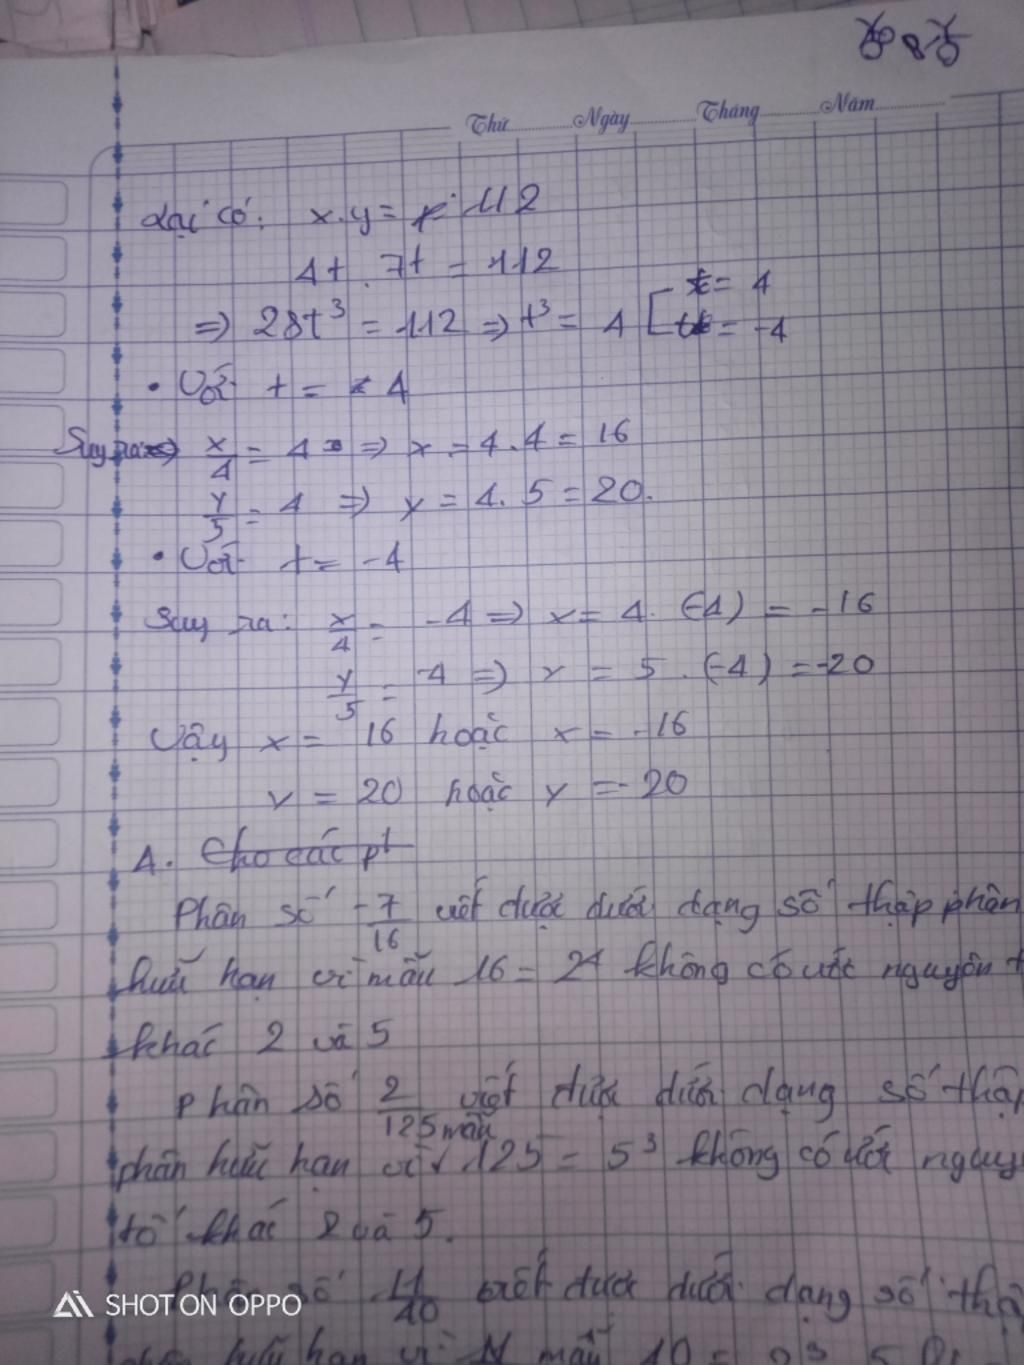 Thứ Ngày Tháng Năm
Lại có: x.y= 112
4t.7t = 112
=> 28t³ = 112 => t³ = 4 [ t= 4
t = -4
• Với t = 4
Suy ra => x/4 = 4 => x = 4.4 = 16
y/5 = 4 => y = 4.5 = 20.
• Với t = -4
Suy ra: x/4 = -4 => x = 4.(-4) = -16
y/5 = -4 => y = 5.(-4) = -20
Vậy x = 16 hoặc x = -16
y = 20 hoặc y = -20
4. Cho các pt
Phân số -7/16 viết được dưới dạng số thập phân
hữu hạn vì mẫu 16 = 2⁴ không có ước nguyên t
khác 2 và 5
Phân số 2/125 viết được dưới dạng số thậ
phân hữu hạn vì mẫu 125 = 5³ không có ước nguy
tố khác 2 và 5.
Phân số 11/40 viết được dưới dạng số thậ
hữu hạn vì mẫu 40 =
SHOT ON OPPO